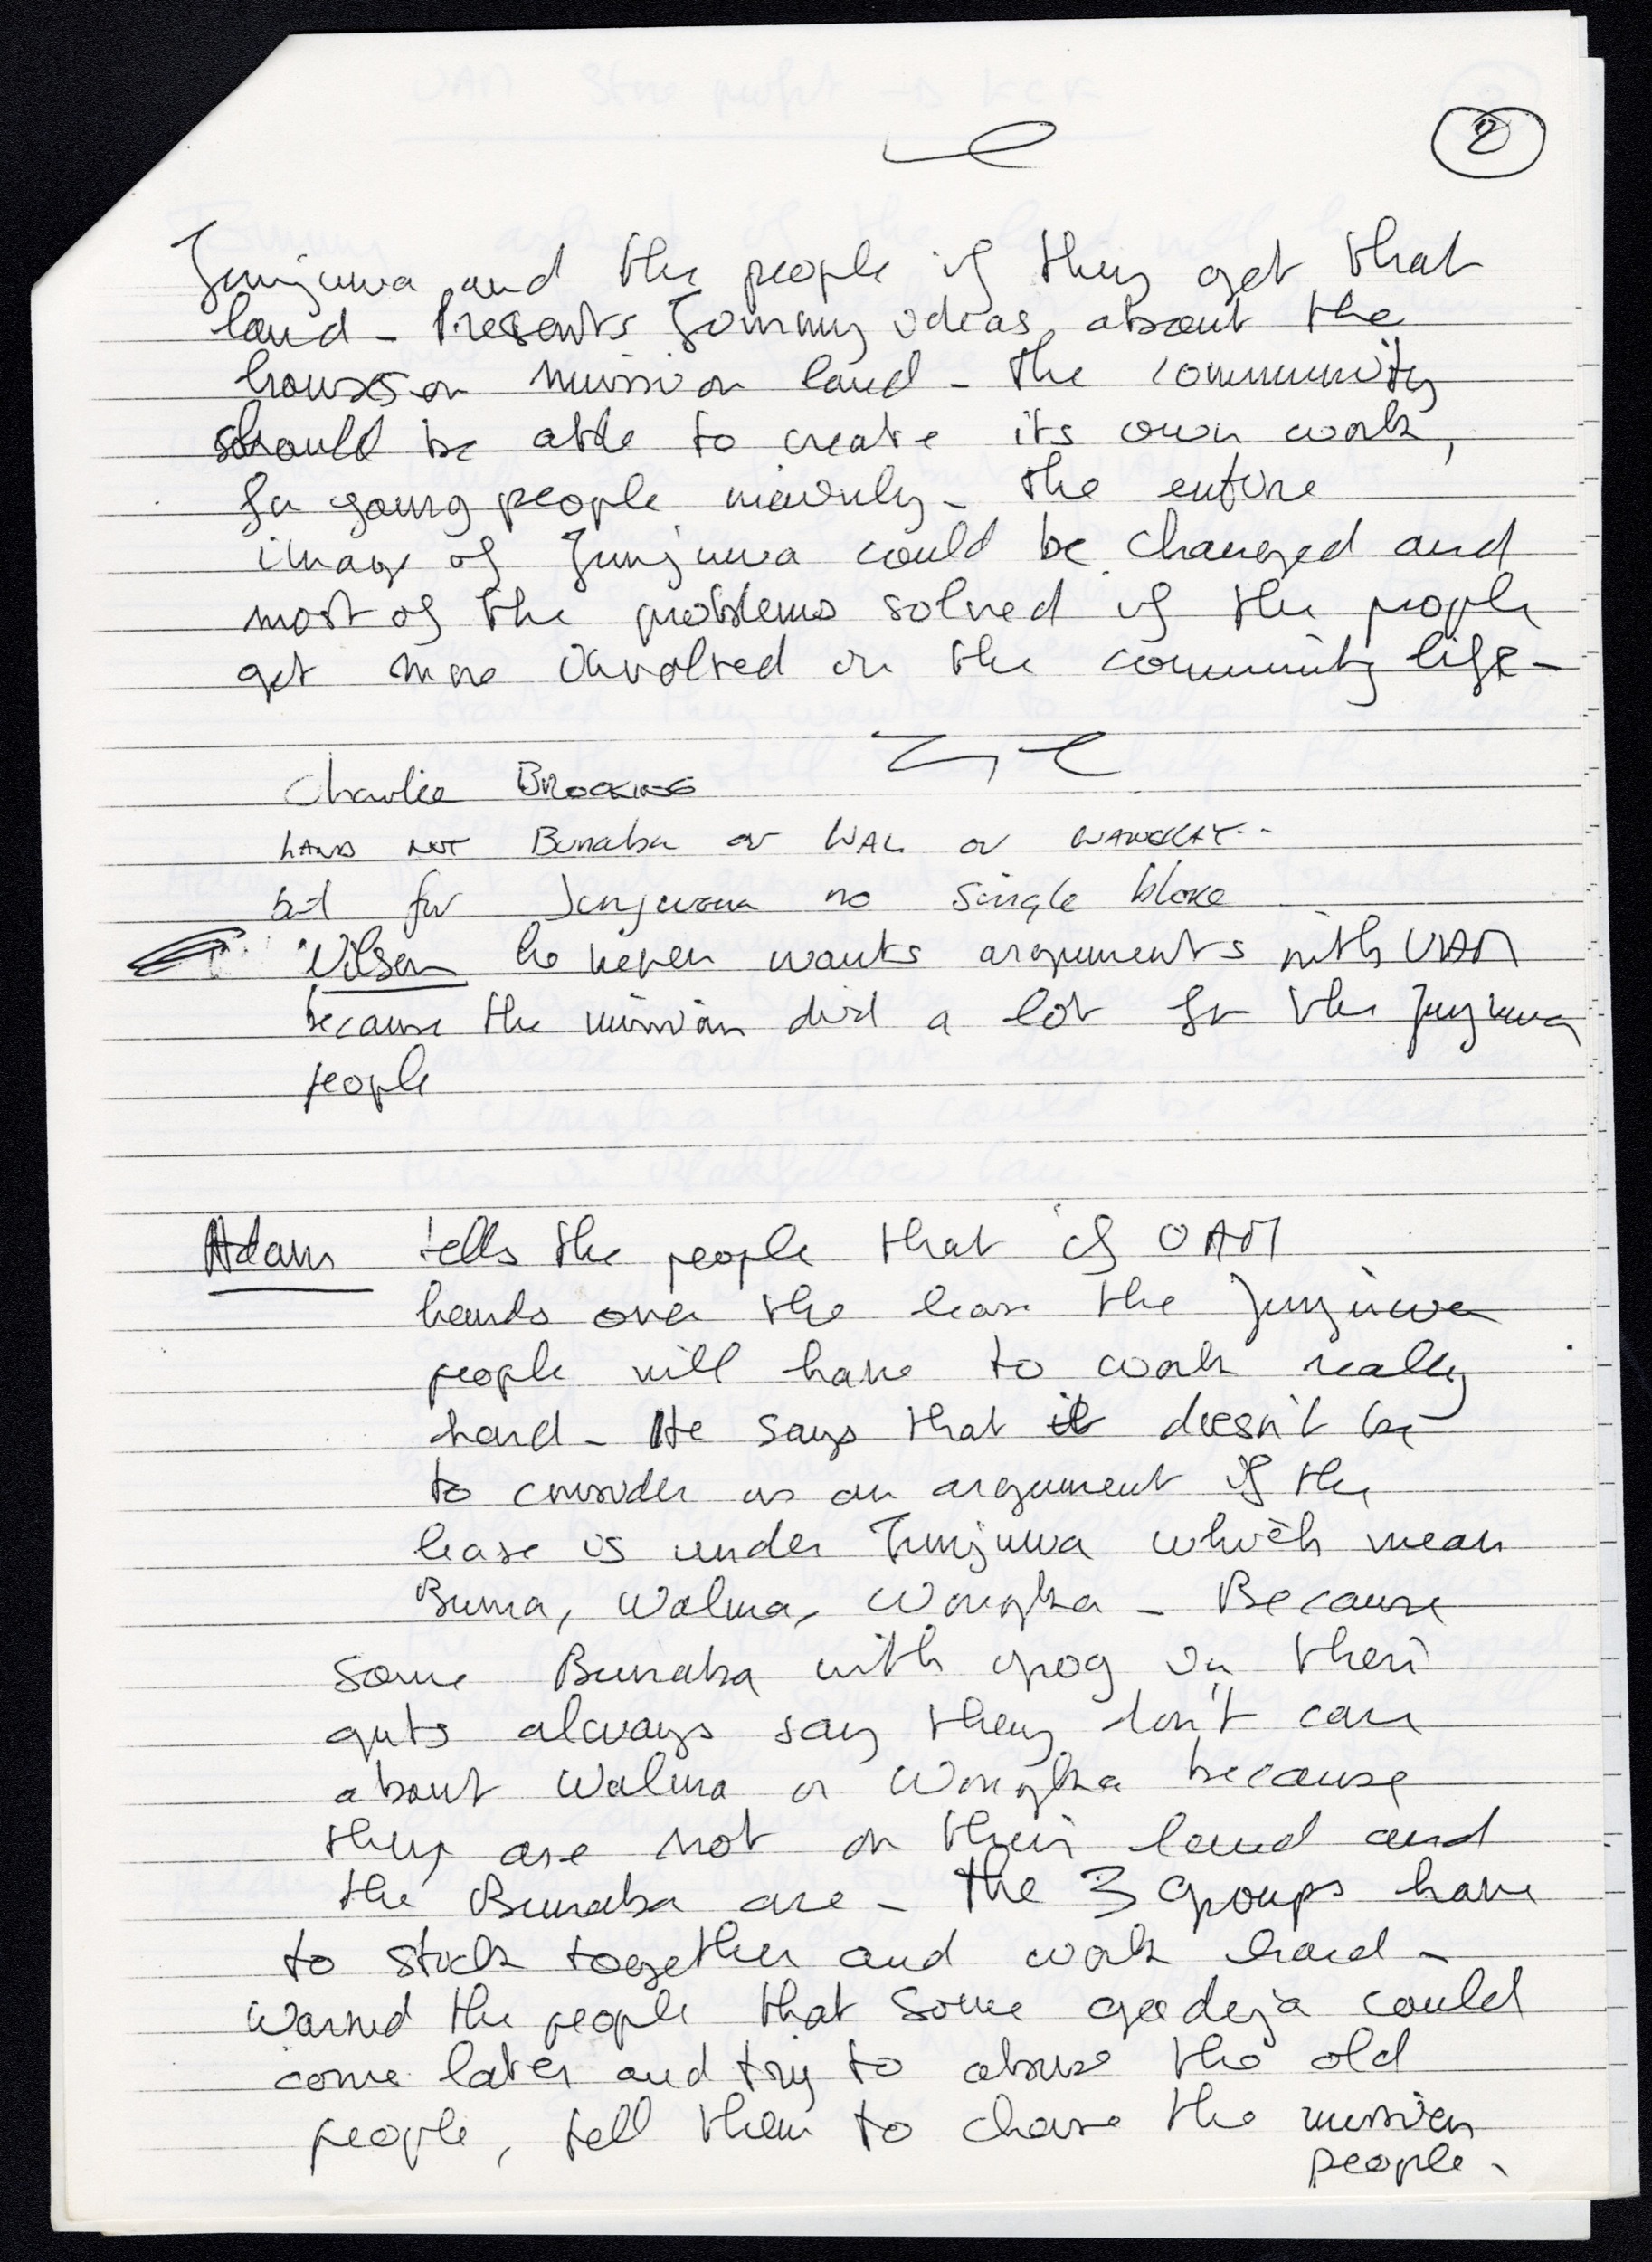 2
Junjuwa and the people if they get that
land - Presents Tommy ideas, about the
houses on mission land - the community
should be able to create its own work,
for young people mainly - the entire
image of Junjuwa could be changed and
most of the problems solved if the people
get more involved in the community life -
Charlie Brooking
LAND NOT Bunaba or WAL or
but for Junjuwa no single bloke
Wilson he never wants arguments with UAM
because the mission did a lot for the Junjuwa
people
Adam tells the people that if UAM
hands over the lease the Junjuwa
people will have to work really
hard - He says that it doesn't be
to consider as an argument if the
lease is under Junjuwa which mean
Buna, Walma, Wongka - Because
some Bunaba with grog in their
guts always say they don't care
about Walma or Wongka because
they are not on their land and
the Bunaba are - the 3 groups have
to stick together and work hard -
Warned the people that some gadeja could
come later and try to abuse the old
people, tell them to chase the mission
people.